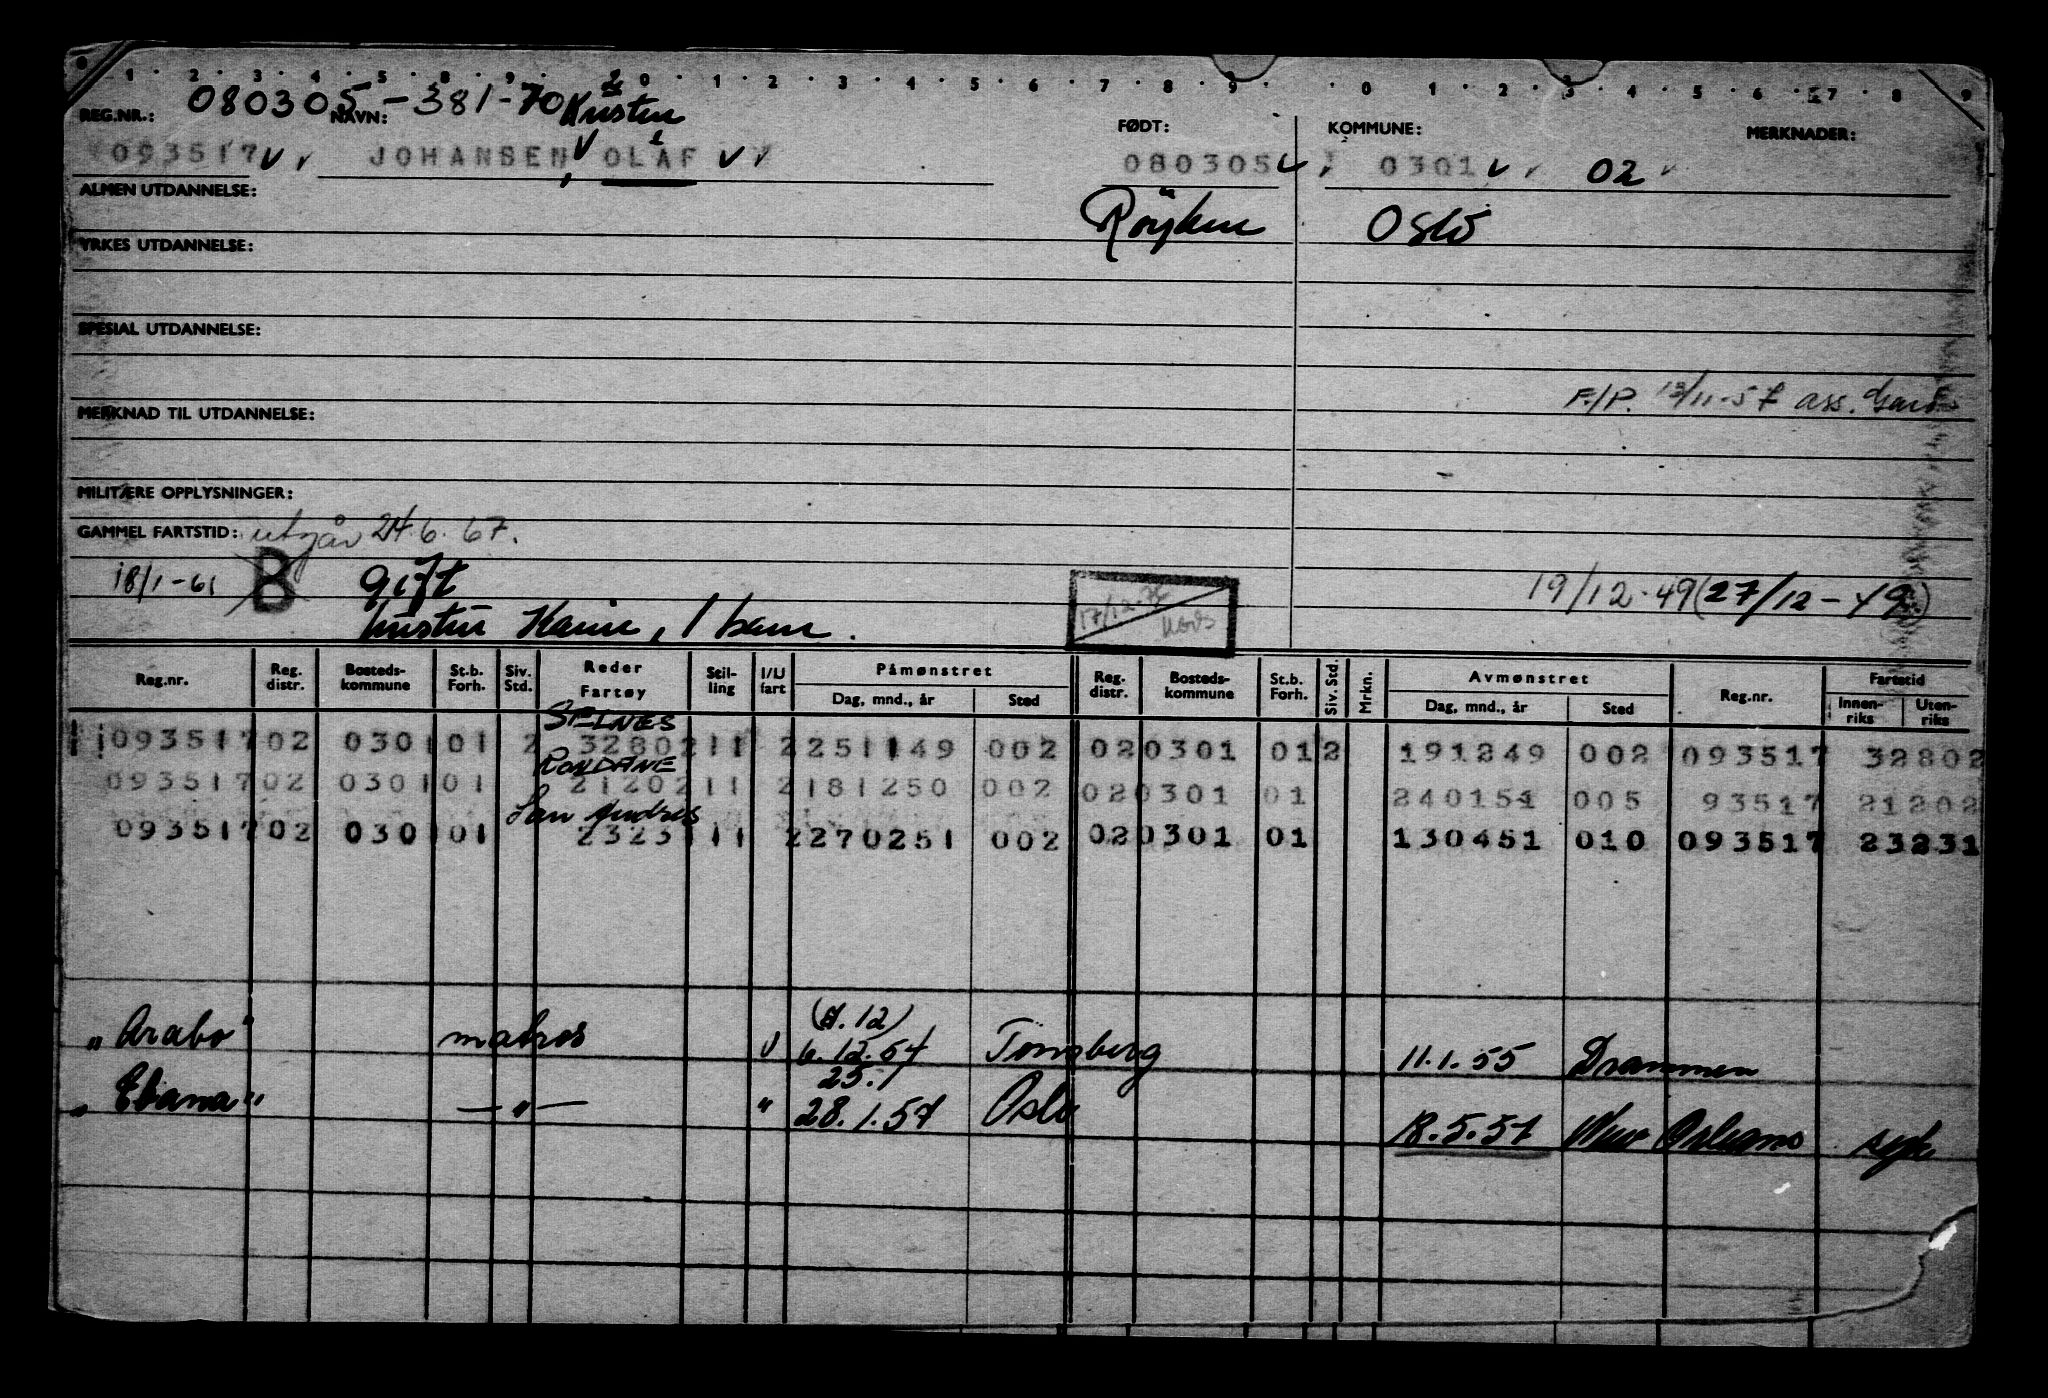 0 1 2 3 4 5 8 9 0 1 2 3 4 5 6 7 8 9 0 1 2 3 4 5 6 7 8 9
080305-381-70 Kristen
REG.NR.: NAVN: FØDT: KOMMUNE: MERKNADER:
093517 JOHANSEN, OLAF 080305 0301 02
ALMEN UTDANNELSE: Röyken Oslo
YRKES UTDANNELSE:
SPESIAL UTDANNELSE:
F./P. 13/11-57 ass.
MERKNAD TIL UTDANNELSE:
MILITÆRE OPPLYSNINGER:
GAMMEL FARTSTID: utgår 24.6.67.
18/1-61 B gift 19/12-49 (27/12-49)
hustru 1 barn.
Reg.nr. Reg. distr. Bosteds-kommune St.b. Forh. Siv. Std. Reder Fartøy Stil-ling I/U fart Påmønstret Reg. distr. Bosteds-kommune St.b. Forh. Siv. Std. Mrkn. Avmønstret Reg.nr. Fartstid
Dag, mnd., år Sted Dag, mnd., år Sted Innen-riks Uten-riks
093517 02 0301 01 2 32802 11 2 251149 002 02 0301 01 2 191249 002 093517 32802
RONDANE
093517 02 0301 01 21202 11 2 181250 002 02 0301 01 240151 005 93517 21202
San Andres
093517 02 0301 01 2323 11 2 270251 002 02 0301 01 130451 010 093517 23231
(4.12)
"Arabo" matros U 6.12.54 Tønsberg 11.1.55 Drammen
25.1
"Elana" —"— " 28.1.57 Oslo 18.5.57 New Orleans syk